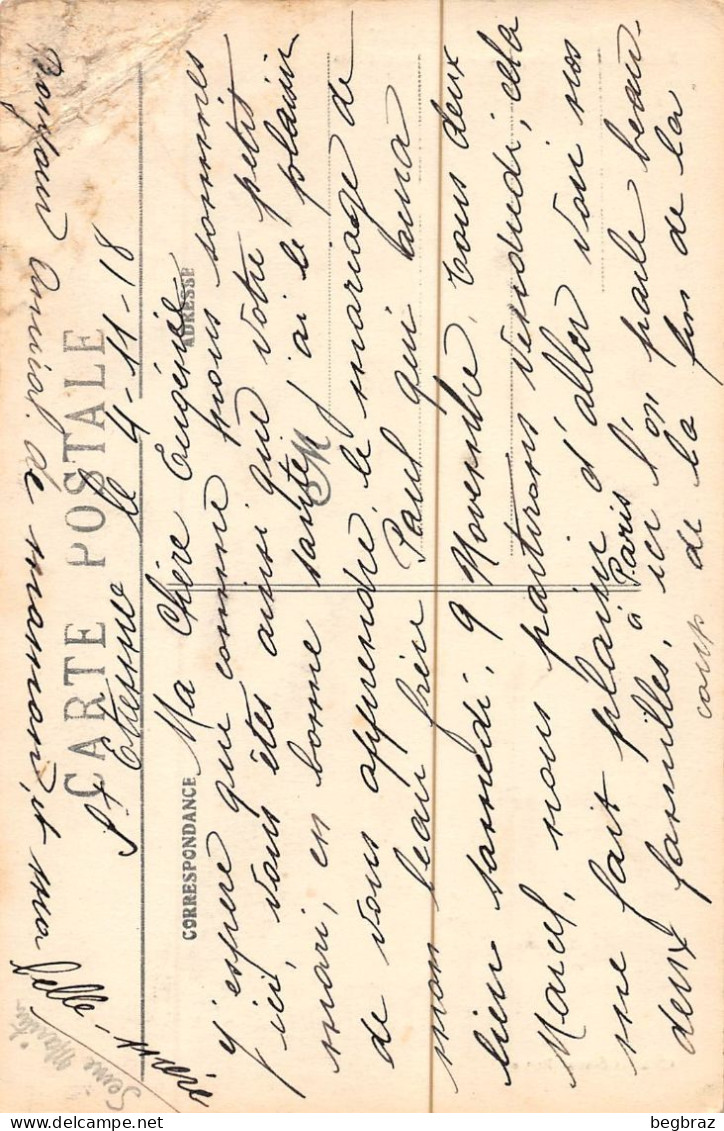 CARTE POSTALE
St Etienne le 4-11-18
CORRESPONDANCE
ADRESSE
Ma Chère Eugénie
J'espère que comme nous sommes
ici, vous êtes ainsi que votre petit
mari, en bonne santé, j'ai le plaisir
de vous apprendre le mariage de
mon beau frère Paul qui aura
lieu samedi, 9 Novembre, tous deux
Marcel, nous partirons vendredi, cela
me fait plaisir d'aller voir nos
deux familles, à Paris ici l'on parle beau-
coup de la fin de la
Bonjour amical de maman, et ma
fille - 
begbraz